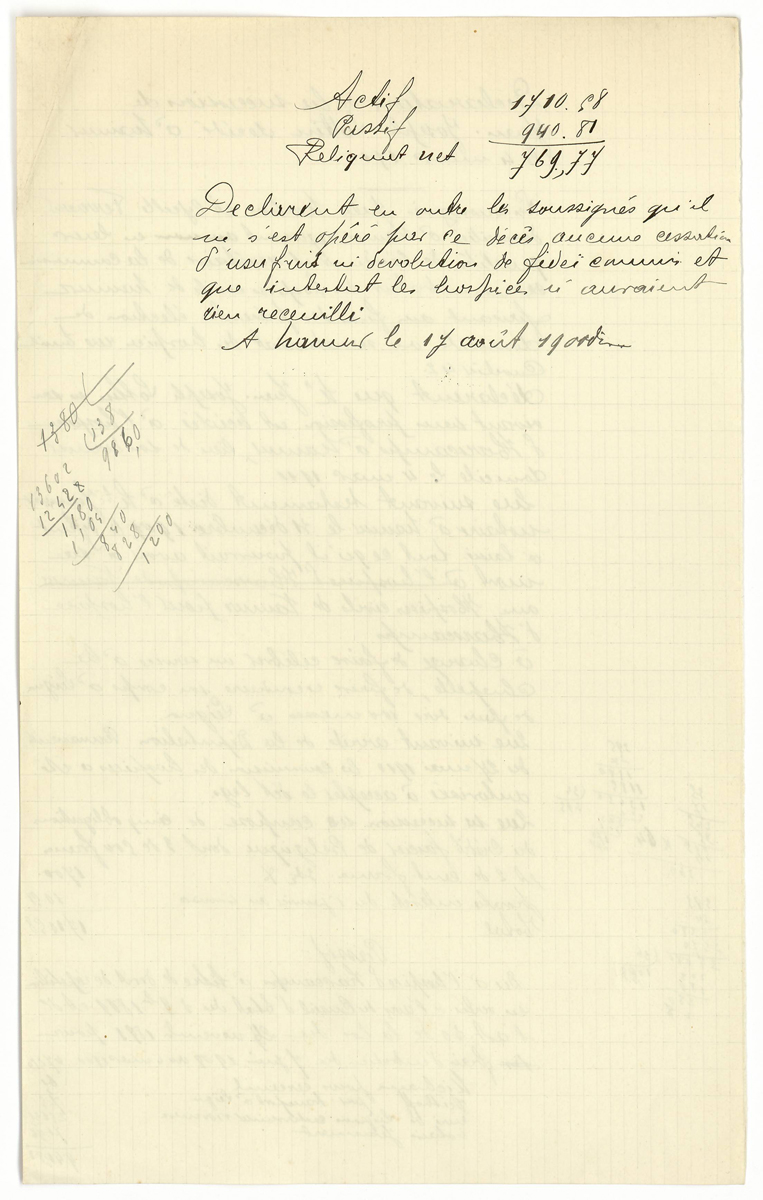 Actif 1710.58
Passif 940.81
Reliquat net 769,77
Declarent en outre les soussignés qu'il
ne s'est opéré par ce décès aucune cessation
d'usufruit ni devolution de fidei commis et
que intestat les hospices n'auraient
rien receuilli
A Namur le 17 août 1900
1380
138
9860,
13602
12428
1180
1104
840
828
1200